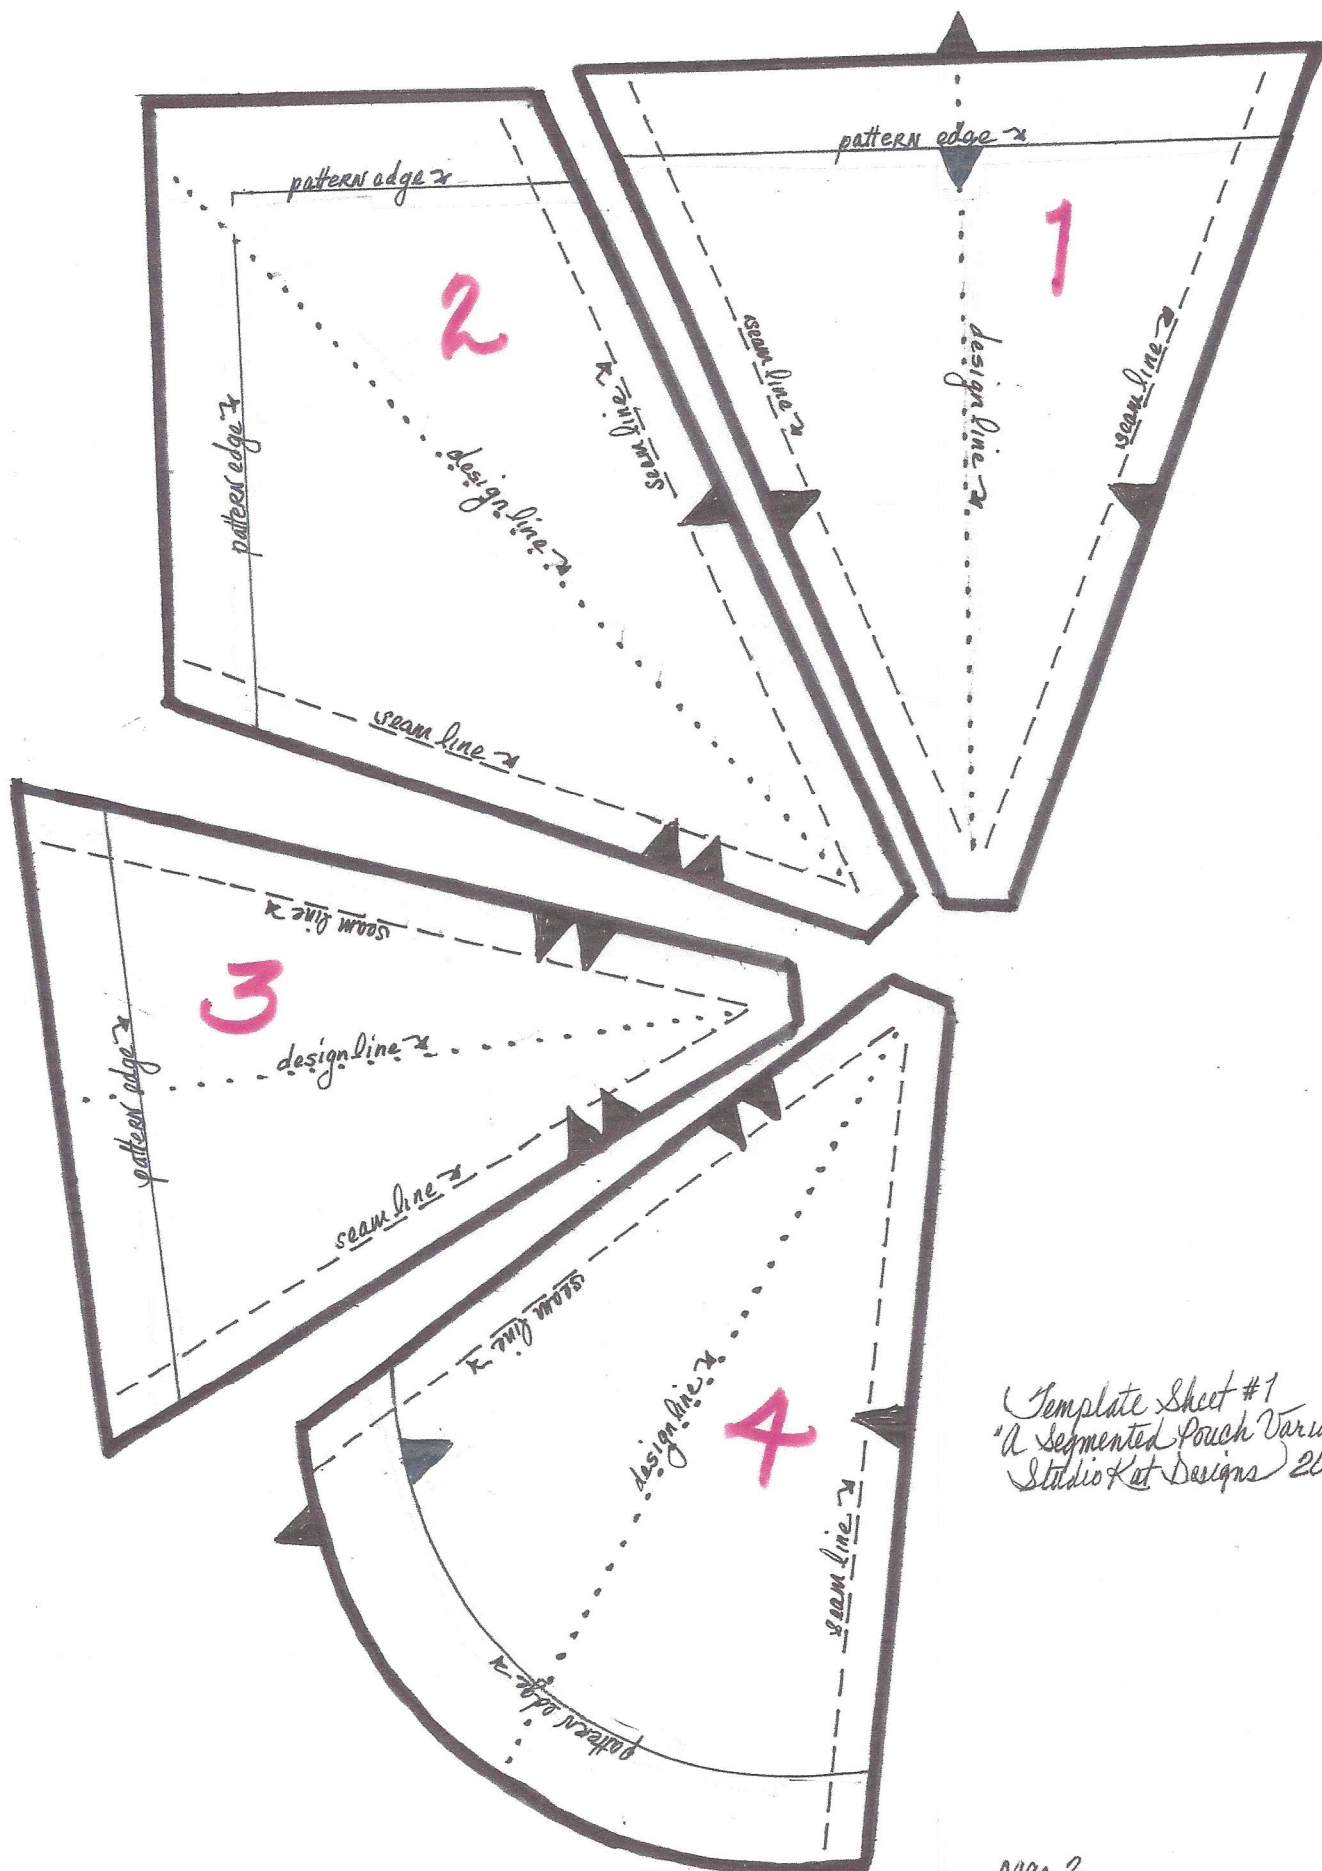 pattern edge
1
seam line
design line
seam line
pattern edge
2
pattern edge
seam line
design line
seam line
seam line
3
design line
pattern edge
seam line
seam line
4
design line
seam line
pattern edge
Template Sheet #1
"A Segmented Pouch
StudioKat Designs